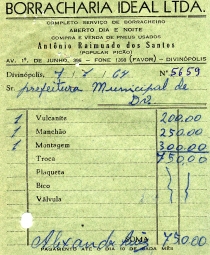 BORRACHARIA IDEAL LTDA.
COMPLETO SERVIÇO DE BORRACHEIRO
ABERTO DIA E NOITE
COMPRA E VENDA DE PNEUS USADOS
Antônio Raimundo dos Santos
(POPULAR PICÃO)
AV. 1º. DE JUNHO, - FONE 1358 (FAVOR) - DIVINÓPOLIS
Divinópolis, 7 / 7 / 69 Nº 5659
Sr. prefeitura Municipal de
1 Vulcanite 200.00
1 Manchão 250.00
1 Montagem 300.00
Troca 750.00
Plaqueta
Bico
Válvula
SOMA 750.00
PAGAMENTO ATÉ O DIA 10 DE CADA MÊS